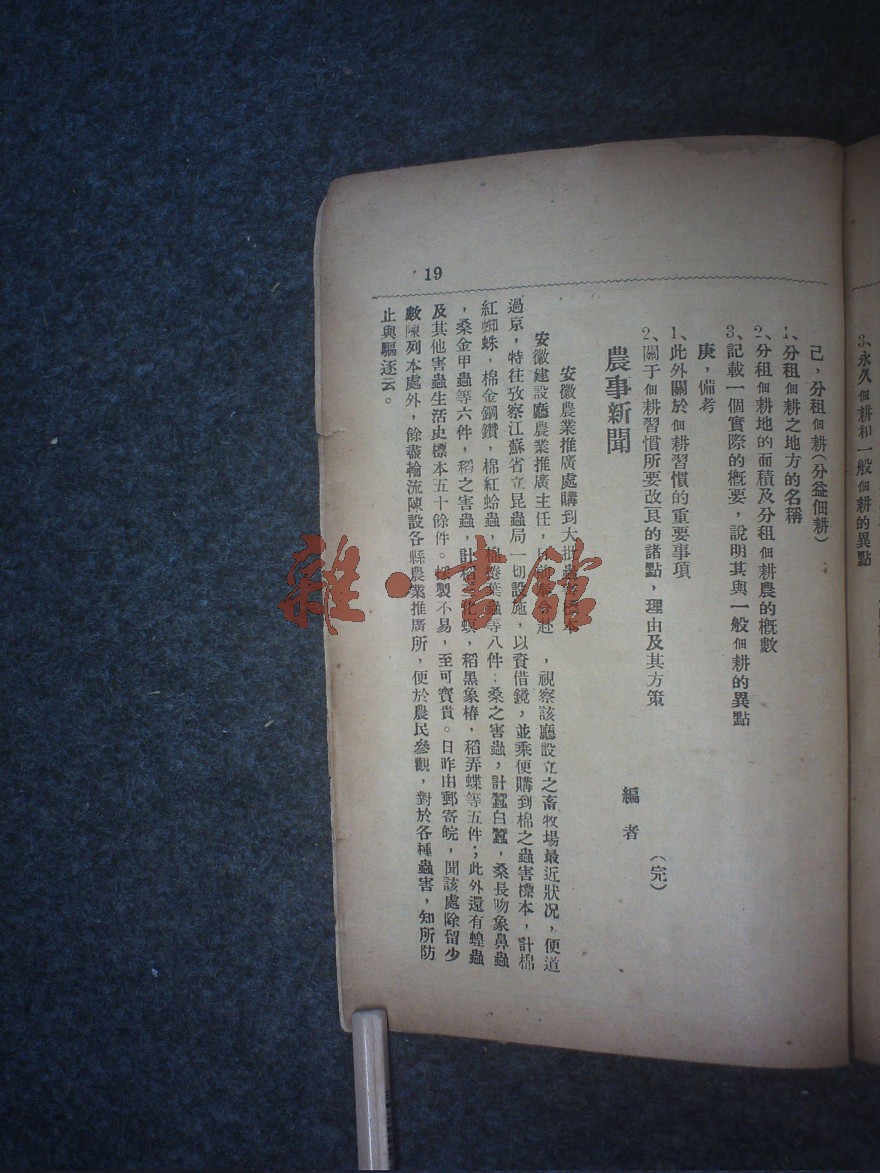 3、永久佃耕和一般佃耕的異點
己，分租佃耕（分益佃耕）
1、分租佃耕之地方的名稱
2、分租佃耕地的面積及分租佃耕農的概數
3、記載一個實際的概要，說明其與一般佃耕的異點
庚，備考
1、此外關於佃耕習慣的重要事項
2、關于佃耕習慣所要改良的諸點，理由及其方策
（完）
農事新聞
編者
安徽農業推廣處購到大批
安徽建設廳農業推廣主任，日前
赴，視察該廳設立之畜牧場最近狀况，便道
過京，特往攷察江蘇省立昆蟲局一切設施，以資借鏡，並乘便購到棉之蟲害標本，計棉
紅蜘蛛，棉金鋼鑽，棉紅蛉蟲，棉捲葉蟲等八件：桑之害蟲，計蠶白蠶，桑長吻象鼻蟲
，桑金甲蟲等六件，稻之害蟲，計稻
螟，稻黑象椿，稻弄蝶等五件；此外還有蝗蟲
及其他害蟲生活史標本五十餘件。採製不易，至可寳貴。日昨由郵寄皖，聞該處除留少
數陳列本處外，餘盡輪流陳設各縣農業推廣所，便於農民參觀，對於各種蟲害，知所防
止與驅逐云。
19
雜·書館